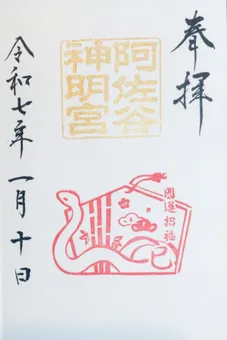 奉拝
阿佐谷
神明宮
開運招福
巳
令和七年 一月十日